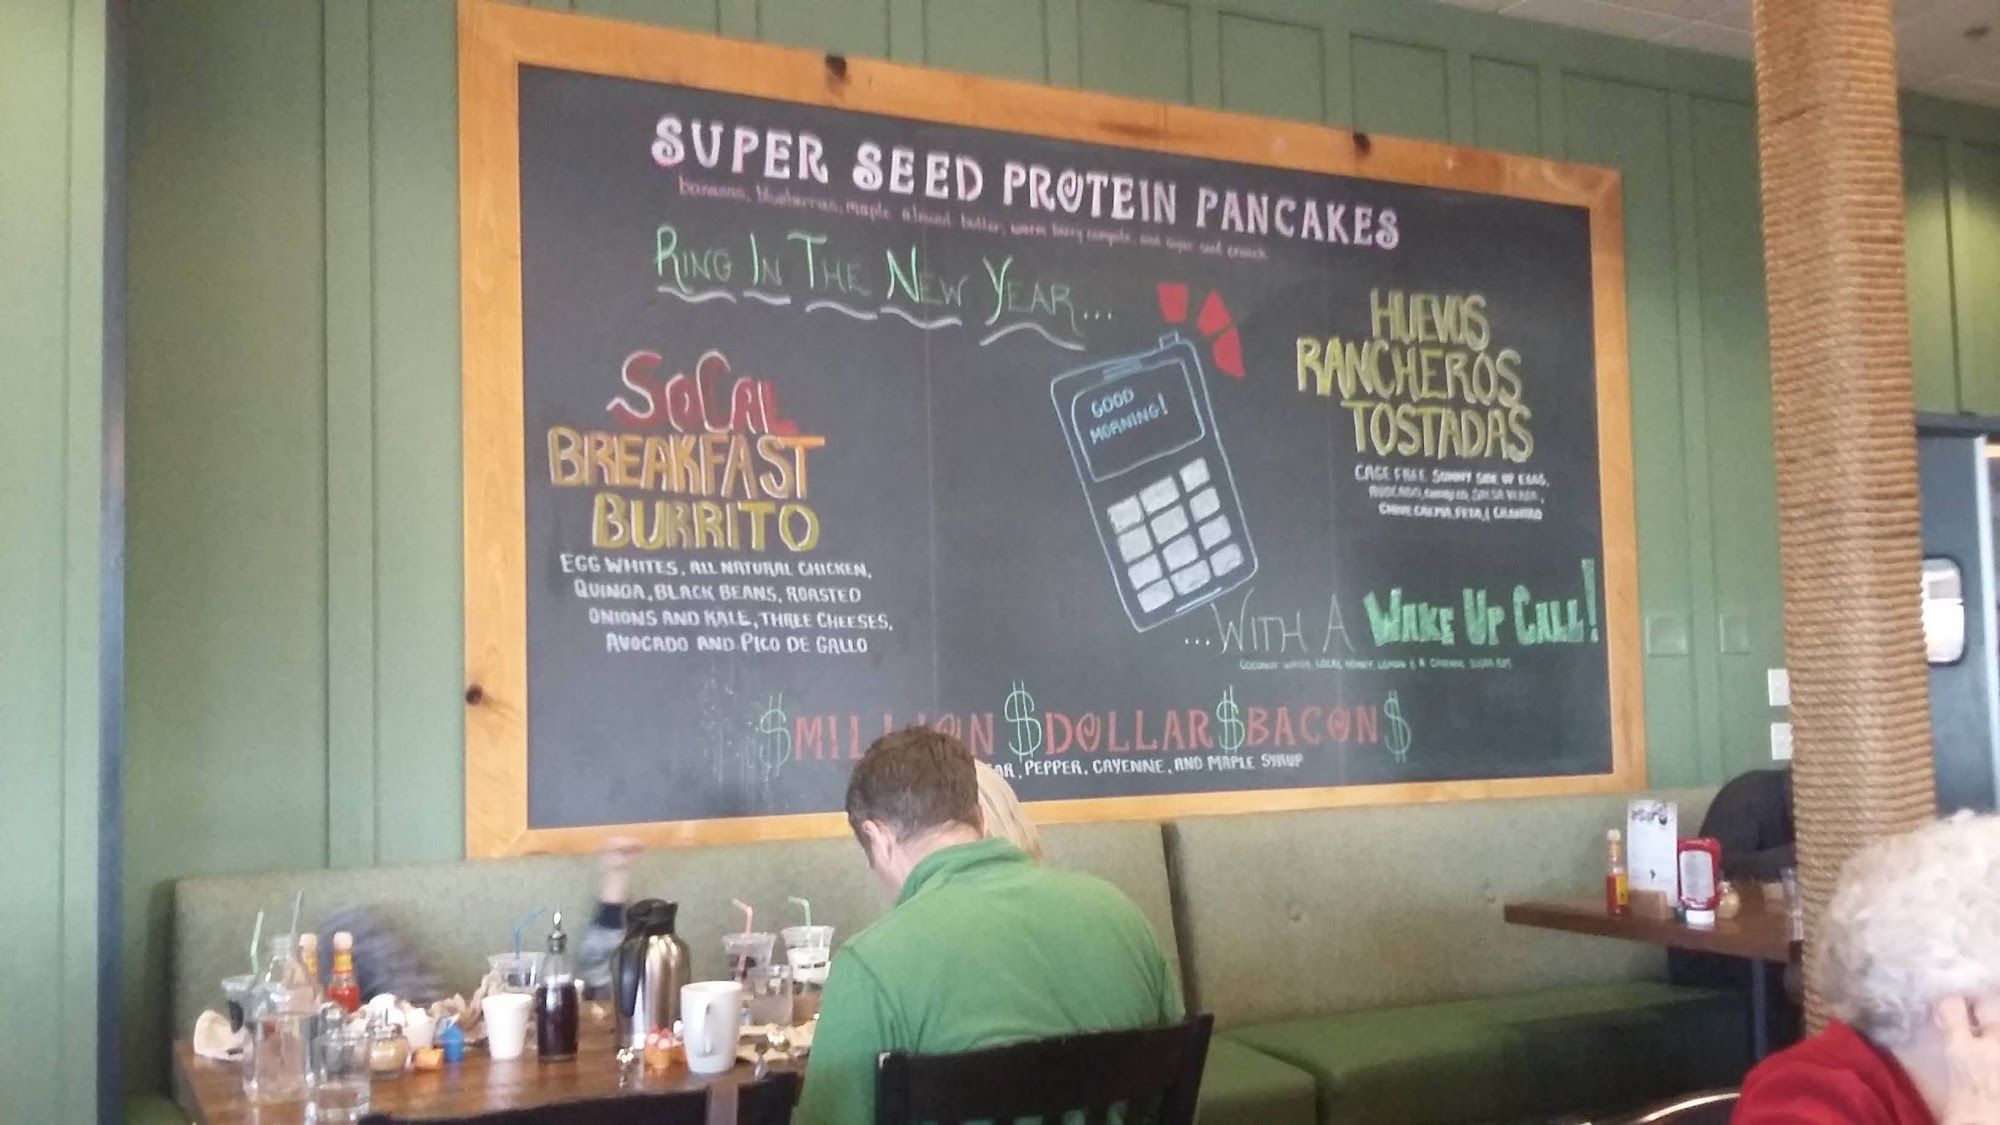 SUPER SEED PROTEIN PANCAKES
bananas, blueberries, maple almond butter, warm berry compote, and super seed crunch
RING IN THE NEW YEAR...
SOCAL
BREAKFAST
BURRITO
EGG WHITES, ALL NATURAL CHICKEN,
QUINOA, BLACK BEANS, ROASTED
ONIONS AND KALE, THREE CHEESES,
AVOCADO AND PICO DE GALLO
GOOD
MORNING!
HUEVOS
RANCHEROS
TOSTADAS
CAGE FREE SUNNY SIDE UP EGGS,
AVOCADO, CHORIZO, SALSA VERDE,
CREMA, FETA, CILANTRO
...WITH A WAKE UP CALL!
COCONUT WATER, LOCAL HONEY, LEMON & A CAYENNE SUGAR RIM
$MILLION $DOLLAR$BACON$
, PEPPER, CAYENNE, AND MAPLE SYRUP